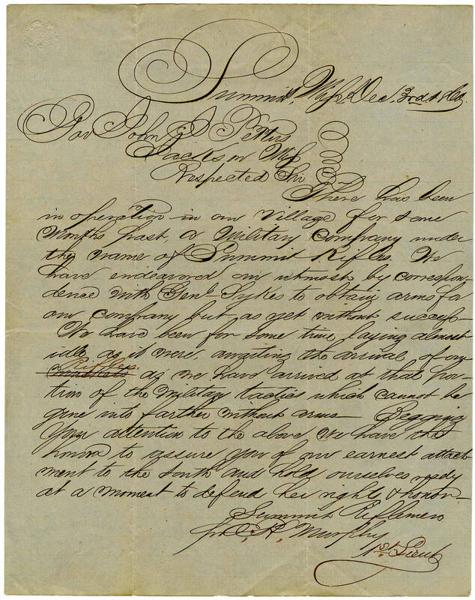 Summit, Miss, Dec. 3rd 1860
Gov John J Pettus
Jackson Miss
Respected Sir
There has been
in operation in our Village for some
Months past, a Military Company under
the name of Summit Rifles. We
have endeavored our utmost by correspon
dence with Genl. Sykes to obtain arms for
our Company but as yet without success
We have been for some time laying almost
idle as it were awaiting the arrival of our
Rifles
as we have arrived at that por
tion of the Military tactics which cannot be
gone into farther without arms Begging
Your attention to the above, we have the
honor to assure you of our earnest attach
ment to the South and hold ourselves ready
at a moment to defend her rights & honor.
Summit Riflemen
pr C. R. Murphy
1st Lieut